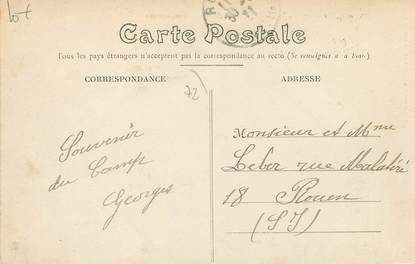 Carte Postale
Tous les pays étrangers n'acceptent pas la correspondance au recto (Se renseigner à la Poste)
CORRESPONDANCE
ADRESSE
72
Souvenir
du Camp
Georges
Monsieur et Mme
Leber rue Malatiré
18 Rouen
(S I)